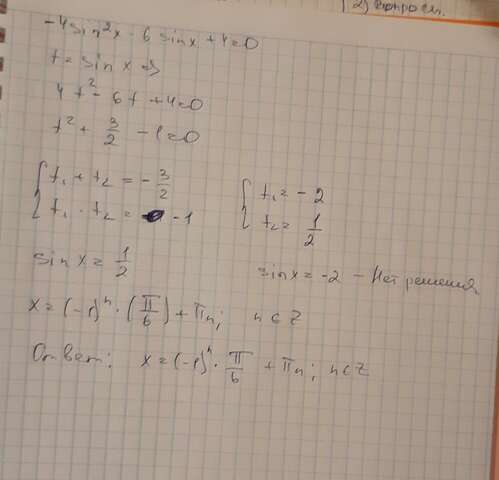 2) Вопросы.
-4sin²x - 6sinx + 4 = 0
t = sin x ⇒
4t² - 6t + 4 = 0
t² + 3/2 - 1 = 0
{ t₁ + t₂ = -3/2
t₁ · t₂ = -1
{ t₁ = -2
t₂ = 1/2
sin x = 1/2
sin x = -2 - Нет решения
x = (-1)ⁿ · (π/6) + πn; n ∈ Z
Ответ: x = (-1)ⁿ · π/6 + πn; n ∈ Z